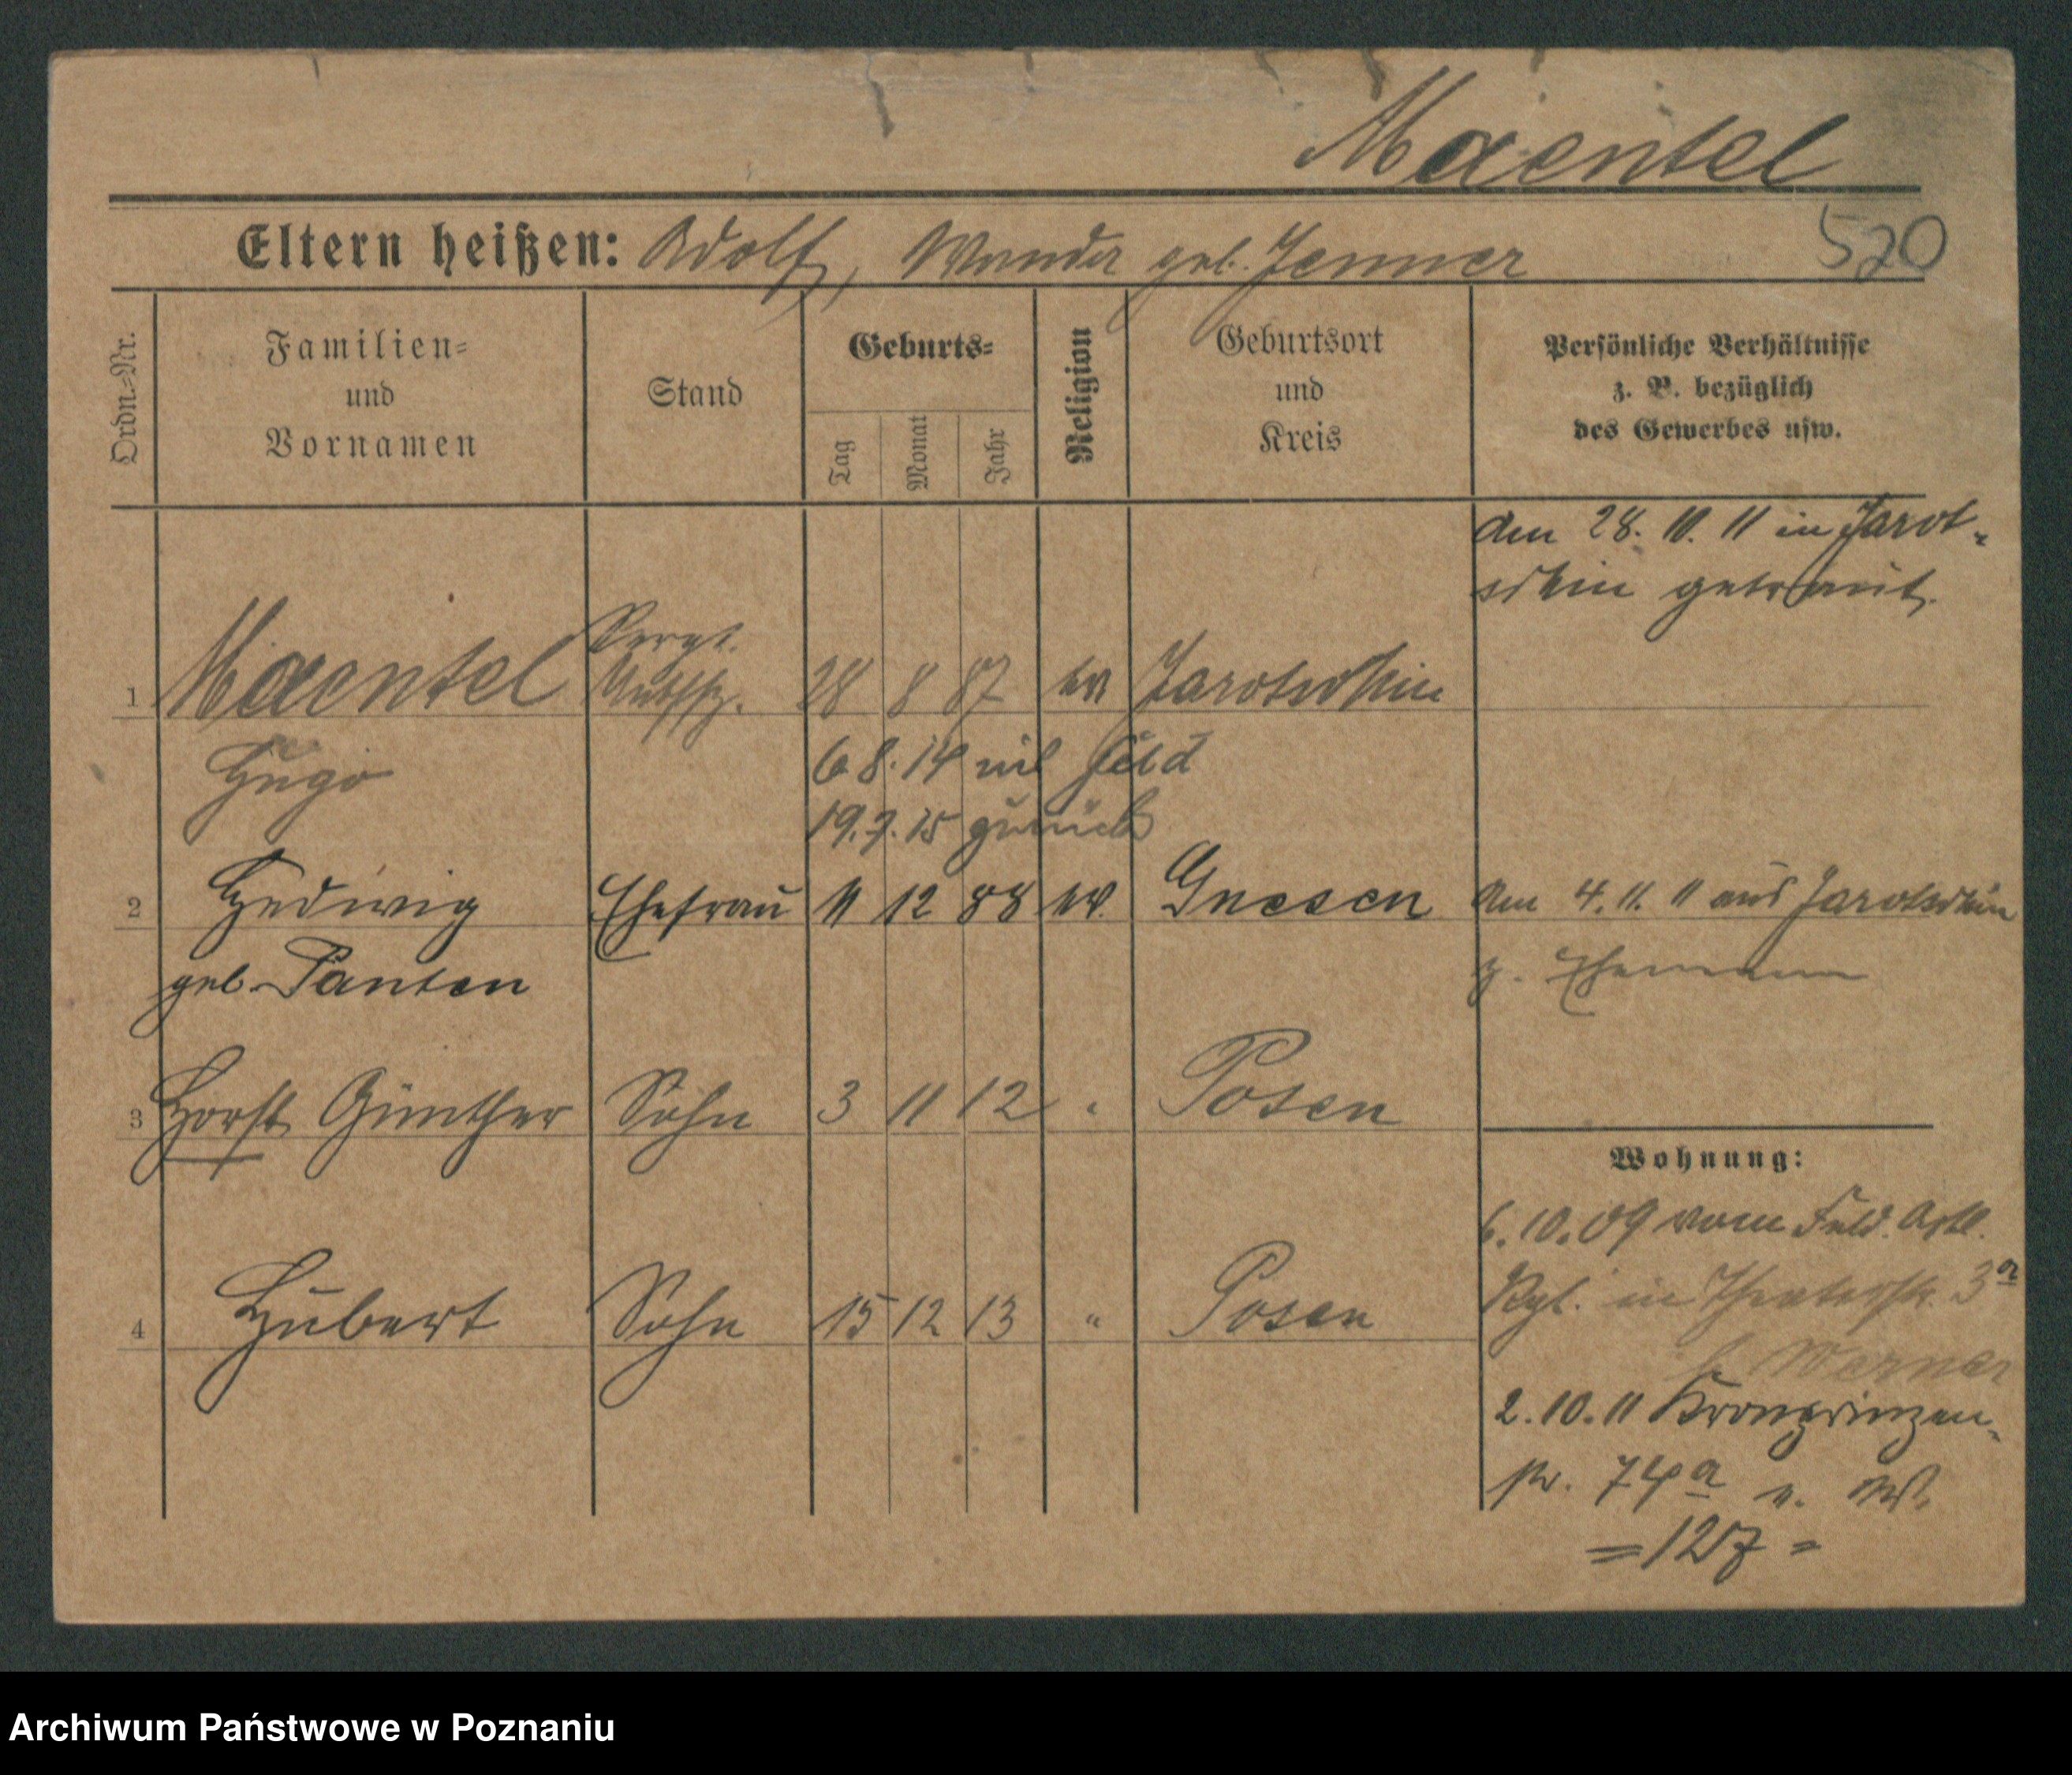 Maentel
520
Eltern heißen: Adolf, Wanda geb. Jenner
Ordn.=Nr.
Familien=
und
Vornamen
Stand
Geburts=
Tag
Monat
Jahr
Religion
Geburtsort
und
Kreis
Persönliche Verhältnisse
z. B. bezüglich
des Gewerbes usw.
am 28. 10. 11 in Jarot-
schin getraut.
1 Maentel Sergt. 28 8 87 ev Jarotschin
Hugo
6 8. 14 ins Feld
19. 7. 15 zurück
2 Hedwig Ehefrau 11 12 88 ev. Gnesen
geb. Panten
am 4. 11. 11 aus Jarotschin
z. Ehemann
3 Horst Günther Sohn 3 11 12 " Posen
4 Hubert Sohn 15 12 13 " Posen
Wohnung:
6. 10. 09 vom Feld. Art.
Rgt. in Theaterstr. 3a
b. Werner
2. 10. 11 Kronprinzen-
str. 74a
= 127 =
Archiwum Państwowe w Poznaniu